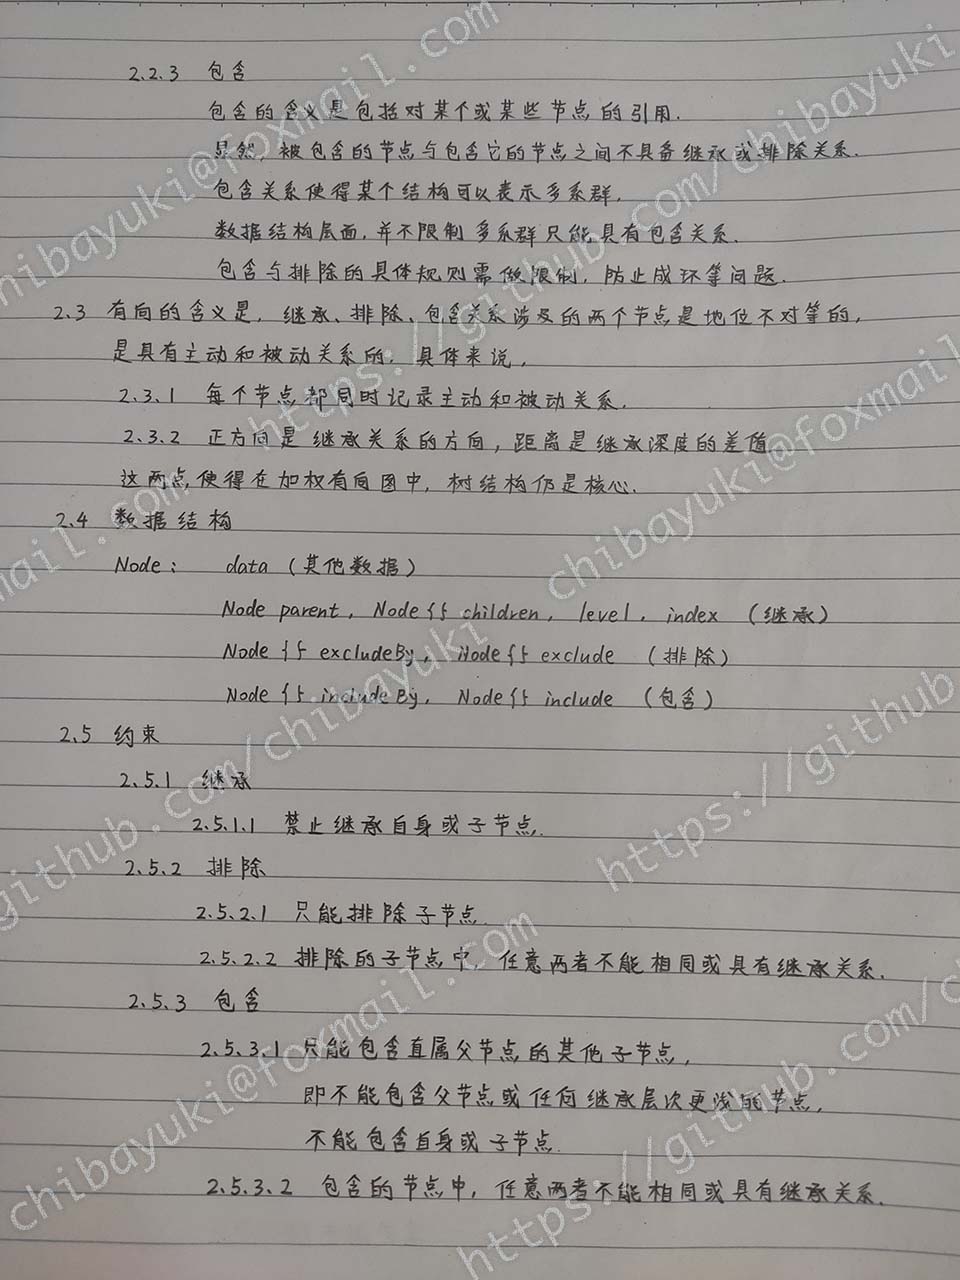 2.2.3 包含
包含的含义是包括对某个或某些节点的引用.
显然, 被包含的节点与包含它的节点之间不具备继承或排除关系.
包含关系使得某个结构可以表示多系群,
数据结构层面, 并不限制多系群只能具有包含关系.
包含与排除的具体规则需做限制, 防止成环等问题.
2.3 有向的含义是, 继承、排除、包含关系涉及的两个节点是地位不对等的,
是具有主动和被动关系的, 具体来说,
2.3.1 每个节点都同时记录主动和被动关系.
2.3.2 正方向是继承关系的方向, 距离是继承深度的差值.
这两点, 使得在加权有向图中, 树结构仍是核心.
2.4 数据结构
Node: data (其他数据)
Node parent, Node{} children, level, index (继承)
Node{} excludeBy, Node{} exclude (排除)
Node{} includeBy, Node{} include (包含)
2.5 约束
2.5.1 继承
2.5.1.1 禁止继承自身或子节点.
2.5.2 排除
2.5.2.1 只能排除子节点.
2.5.2.2 排除的子节点中, 任意两者不能相同或具有继承关系.
2.5.3 包含
2.5.3.1 只能包含直属父节点的其他子节点,
即不能包含父节点或任何继承层次更浅的节点,
不能包含自身或子节点.
2.5.3.2 包含的节点中, 任意两者不能相同或具有继承关系.
chibayuki@foxmail.com
https://github.com/chibayuki